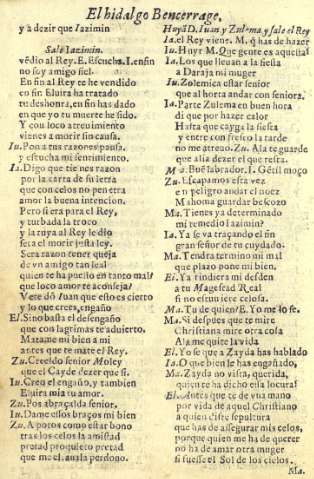 El hidalgo Bencerrage.
y a dezir que Iazimin
Sale Iazimin.
vēdio al Rey. E. Escucha. I. en fin
no soy amigo fiel.
En fin al Rey te he vendido
en fin Eluira ha tratado
tu deshonra, en fin has dado
en que yo tu muerte he sido.
Y con loco atreuimiento
vienes a morir sin causa.
Iu. Pon a tus razones pausa.
y escucha mi sentimiento.
Ia. Digo que tienes razon
por la carta de su letra
que con celos no penetra
amor la buena intencion.
Pero si era para el Rey,
y turbada la troco
y la tuya al Rey le dio
sera el morir justa ley.
Sera razon tener queja
de vn amigo tan leal
quien te ha puesto en tanto mal
que loco amor te aconseja?
Vete dō Iuan que esto es cierto
y lo que crees, engaño
El. Sino basta el desengaño
que con lagrimas te aduierto.
Matame mi bien a mi
antes que te mate el Rey.
Zu. Creed lo senior Moley
que el Cayde dezer que si.
Iu. Creo el engaño, y tambien
Eluira mia tu amor.
Zu. Pos abraçalda senior.
Iu. Dame essos braços mi bien
Zu. A potos como estar bono
tras los celos la amistad
pretad proquieto pretad
que me el aula perdono.
Huyē D. Iuan y Zulema, y sale el Rey
Ia. el Rey viene. M. q̄ has de hazer
Iu. Huyr M. Que gente es aquesta
Ia. Los que lleuan a la fiesta
a Daraja mi muger
Iu. Zolemica estar senior
que al horta andar con seniora.
Ia. Parte Zulema en buen hora
di que por hazer calor
Hasta que cayga la siesta
y entre con fresco la tarde
no me atreuo. Zu. Ala te guarde
que alia dezer el que resta.
M. Buē labrador. I. Gētil moço
Zu. Escapamos esta vez
en peligro andar el nuez
Mahoma guardar bescozo
Ma. Tienes ya determinado
mi remedio Iazimin?
Ia. Ya se va traçando el fin
gran señor de tu cuydado.
Ma. Tendra termino mi mal
que plazo pone mi bien.
El. Ya rindiera mi desden
a tu Magestad Real
si no estuuiere celosa.
Ma. Tu de quien? E. Yo me lo se.
Ma. Si despues que te mire
Christiana mire otra cosa
Ala me quite la vida
El. Yo se que a Zayda has hablado
Ia. O que bien le has engañado,
Ma. Zayda no vista, querida,
quien te ha dicho essa locura!
El. Antes que te de vna mano
por vida de aquel Christiano
a quien diste sepultura
que has de assegurar mis celos,
porque quien me ha de querer
no ha de amar otra muger
si fuesse el Sol de los cielos.
Ma.